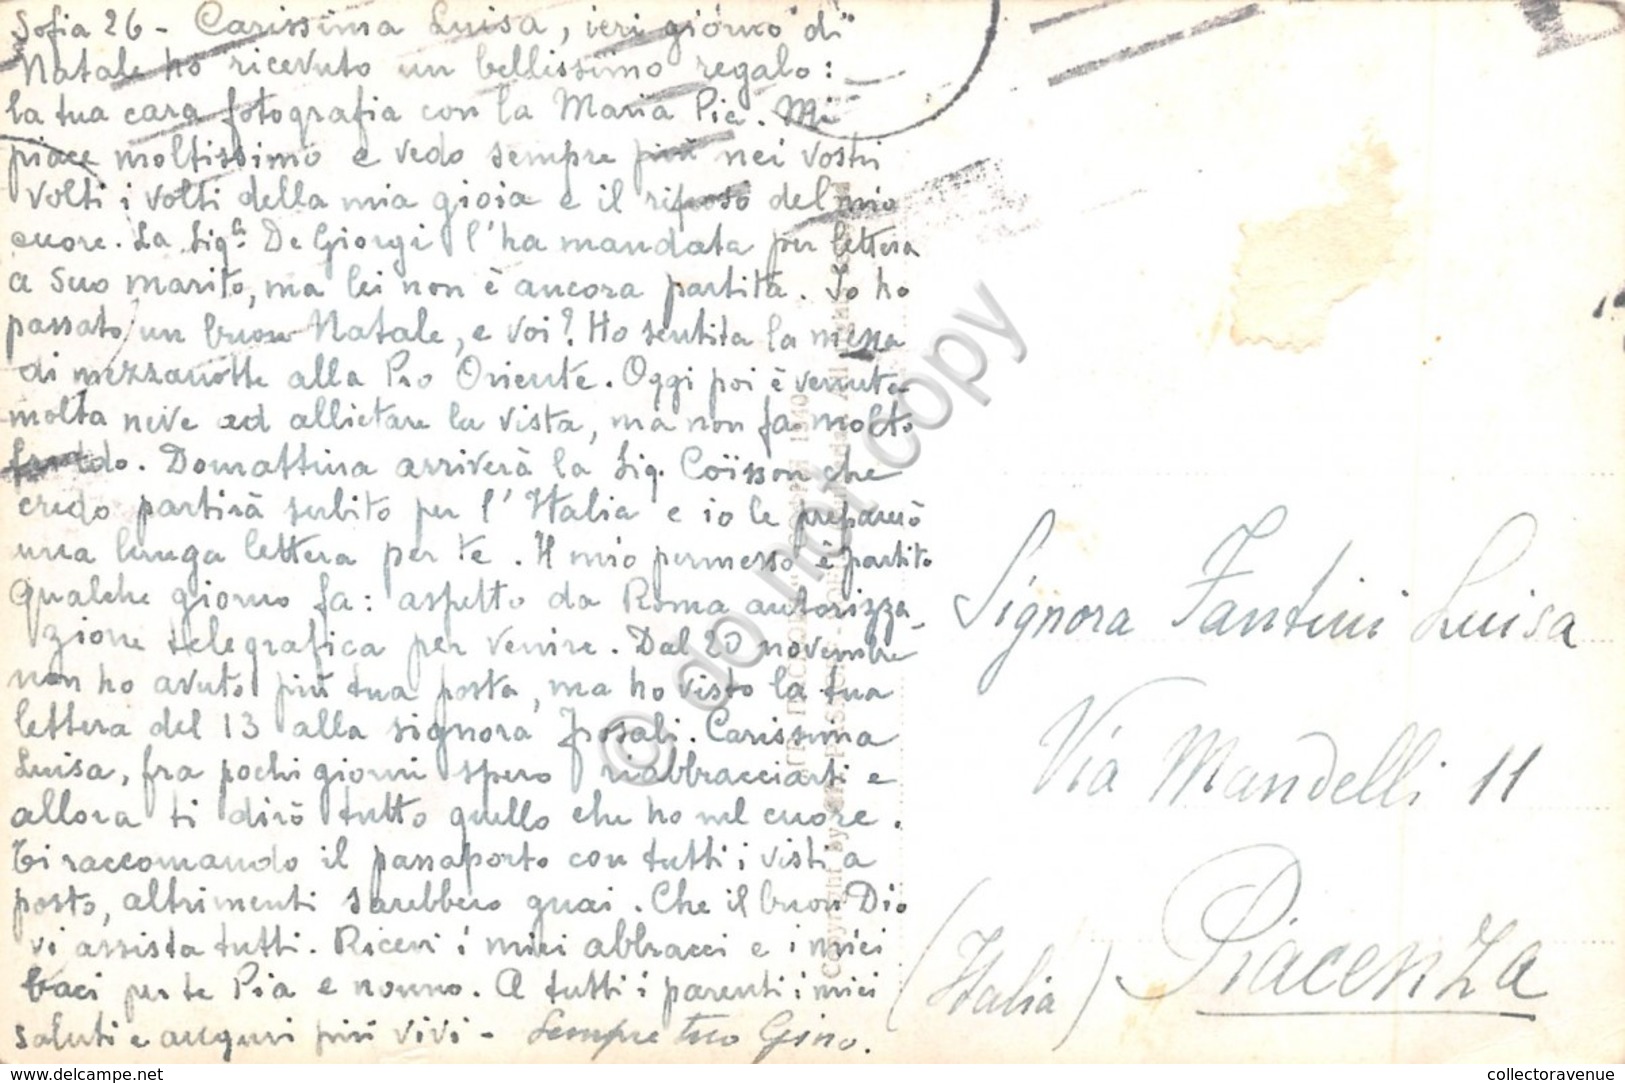 Sofia 26 - Carissima Luisa, ieri giorno di
Natale ho ricevuto un bellissimo regalo:
la tua cara fotografia con la Maria Pia. Mi
piace moltissimo e vedo sempre più nei vostri
volti i volti della mia gioia e il riposo del mio
cuore. La Sig.ra De Giorgi l'ha mandata per lettera
a suo marito, ma lei non è ancora partita. Io ho
passato un buon Natale, e voi? Ho sentita la messa
di mezzanotte alla Pro Oriente. Oggi poi è venuta
molta neve ad allietare la vista, ma non fa molto
freddo. Domattina arriverà la Sig. Coïsson che
credo partirà subito per l'Italia e io le preparerò
una lunga lettera per te. Il mio permesso è partito
qualche giorno fa: aspetto da Roma autorizza-
zione telegrafica per venire. Dal 20 novembre
non ho avuto più tua posta, ma ho visto la tua
lettera del 13 alla signora Josali. Carissima
Luisa, fra pochi giorni spero riabbracciarti e
allora ti dirò tutto quello che ho nel cuore.
Ti raccomando il passaporto con tutti i visti a
posto, altrimenti sarebbero guai. Che il buon Dio
vi assista tutti. Ricevi i miei abbracci e i miei
baci per te Pia e nonno. A tutti i parenti i miei
saluti e auguri più vivi - Sempre tuo Gino.
Signora Fantini Luisa
Via Mandelli 11
Piacenza
(Italia)
© do not copy
www.delcampe.net
collectoravenue